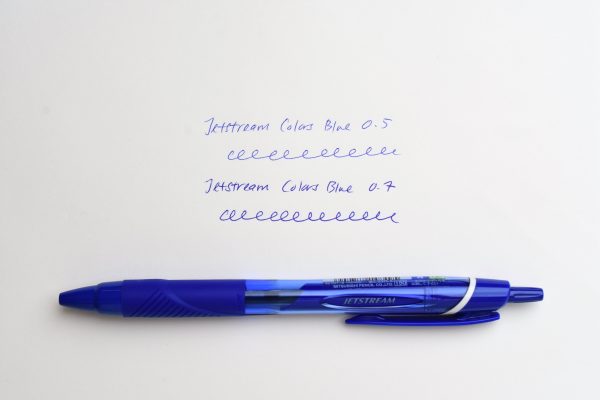 Jetstream Colors Blue 0.5
Jetstream Colors Blue 0.7
MITSUBISHI PENCIL CO.,LTD.
JETSTREAM